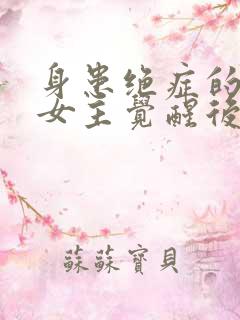 身患绝症的
女主覺醒後
蘇蘇寶貝